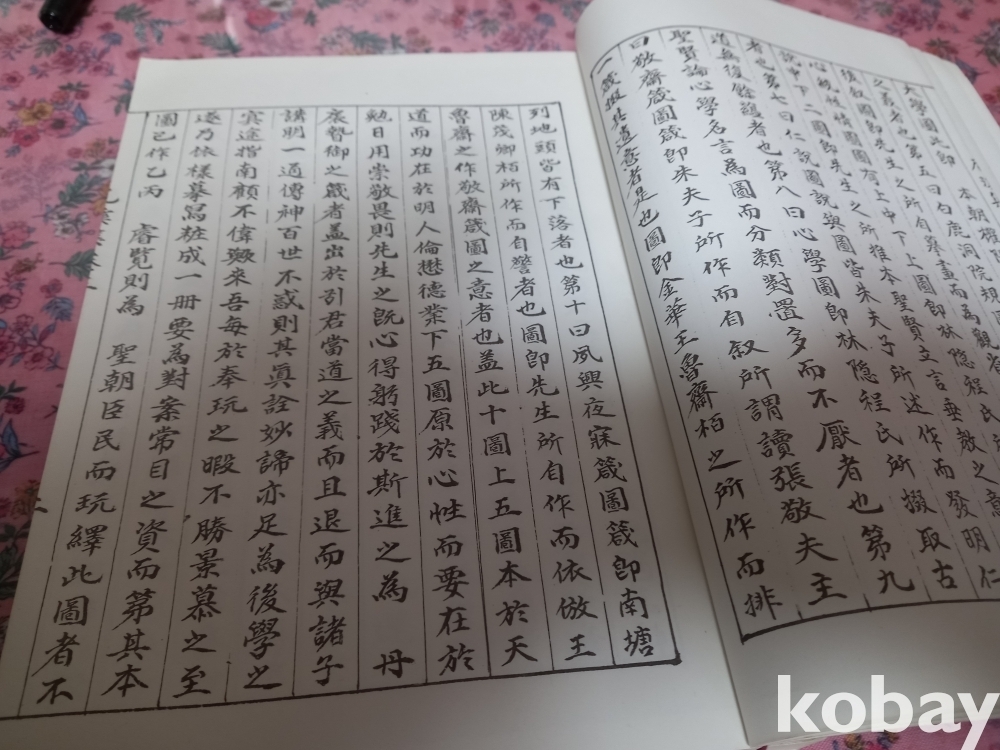 大學圖此即
之義者也第五曰白鹿洞院規
後叙圖即先生之所推本聖賢立言垂教之意
心統性情圖圖有上中下上圖即林隱程氏
說中下二圖即先生之所自
者也第七曰仁說圖說與圖皆朱夫子所述作而發明仁
道無後餘蘊者也第八曰心學圖即林隱程氏所掇取古
聖賢論心學名言為圖而分類對置多而不厭者也第九
曰敬齋箴圖箴即朱夫子所作而自叙所謂讀張敬夫主
一箴掇其遺意者是也圖即金華王魯齋栢之所作而排
列地頭皆有下落者也第十曰夙興夜寐箴圖箴即南塘
陳茂卿栢所作而自警者也圖即先生所自作而依倣王
魯齋之作敬齋箴圖之意者也盖此十圖上五圖本於天
道而功在於明人倫懋德業下五圖原於心性而要在於
勉日用崇敬畏則先生之旣心得躬踐於斯進之為 丹
扆暬御之箴者盖出於引君當道之義而且退而與諸子
講明一通傳神百世不惑則其眞詮妙諦亦足為後學之
冥途指南顧不偉歟來吾每於奉玩之暇不勝景慕之至
遂乃依樣摹寫粧成一冊要為對案常目之資而第其本
圖已作乙丙 睿覽則為 聖朝臣民而玩繹此圖者不
kobay